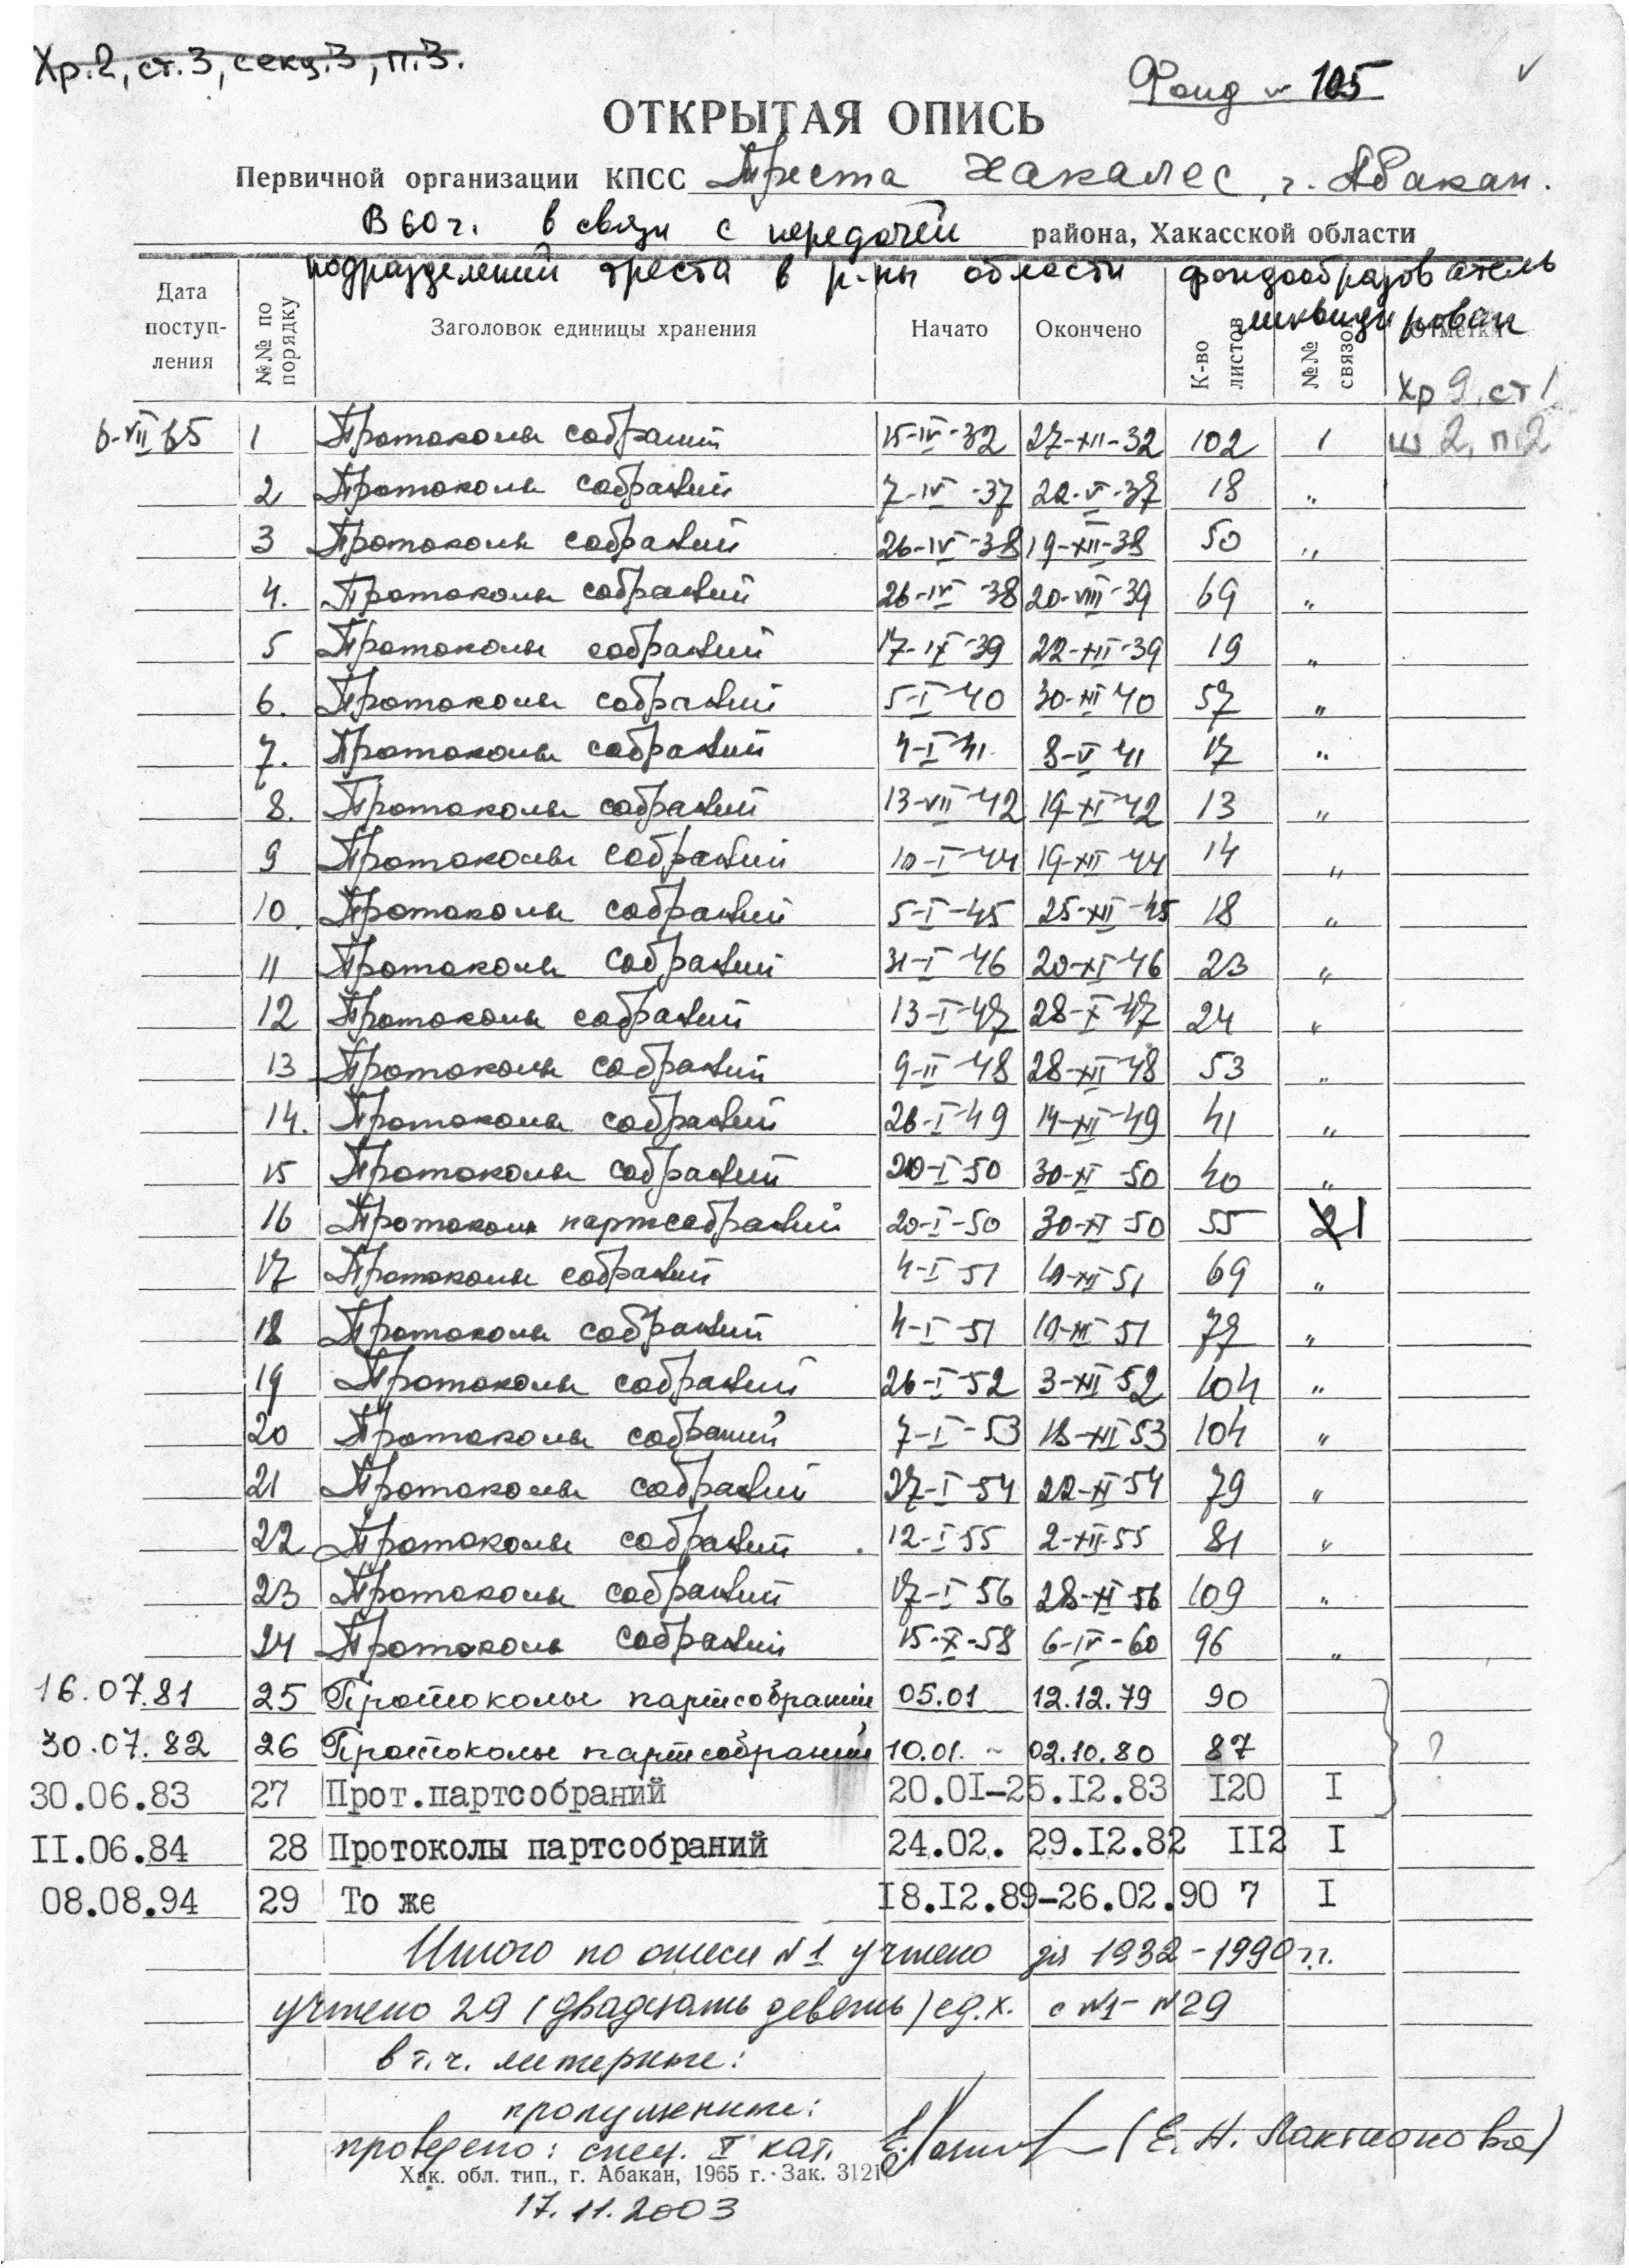 Хр.2, ст.3, секц.3, п.3.
Фонд № 105
ОТКРЫТАЯ ОПИСЬ
Первичной организации КПСС Треста Хакалес, г. Абакан.
В 60 г. в связи с передачей района, Хакасской области
подразделений треста в р-ны области фондообразователь
ликвидирован
Дата поступ-ления №№ по порядку Заголовок единицы хранения Начато Окончено К-во листов №№ связок Отметки
Хр 9, ст 1
6-VII 65 1 Протоколы собраний 15-IV-32 27-XII-32 102 1 ш 2, п.2
2 Протоколы собраний 7-IV-37 22-V-37 18 "
3 Протоколы собраний 26-IV-38 19-XII-38 50 "
4. Протоколы собраний 26-IV-38 20-VIII-39 69 "
5 Протоколы собраний 17-IX-39 22-XII-39 19 "
6. Протоколы собраний 5-I-40 30-XII 40 57 "
7. Протоколы собраний 4-I-41 8-V 41 17 "
8. Протоколы собраний 13-VII-42 19-XI-42 13 "
9 Протоколы собраний 10-I-44 19-XII-44 14 "
10. Протоколы собраний 5-I-45 25-XII-45 18 "
11 Протоколы собраний 31-I-46 20-XI-46 23 "
12 Протоколы собраний 13-I-47 28-X-47 24 "
13 Протоколы собраний 9-II-48 28-XII-48 53 "
14. Протоколы собраний 26-I-49 14-XII-49 41 "
15 Протоколы собраний 20-I-50 30-XI-50 40 "
16 Протоколы партсобраний 20-I-50 30-XI 50 55 21
17 Протоколы собраний 4-I-51 10-XII-51 69 "
18 Протоколы собраний 4-I-51 10-XII-51 79 "
19 Протоколы собраний 26-I-52 3-XII 52 104 "
20 Протоколы собраний 7-I-53 18-XII 53 104 "
21 Протоколы собраний 27-I-54 22-XI 54 79 "
22 Протоколы собраний 12-I-55 2-XII-55 81 "
23 Протоколы собраний 17-I-56 28-XI 56 109 "
24 Протоколы собраний 15-X-58 6-IV-60 96 "
16.07.81 25 Протоколы партсобраний 05.01 12.12.79 90
30.07.82 26 Протоколы партсобраний 10.01. ~ 02.10.80 87 ?
30.06.83 27 Прот.партсобраний 20.0I-25.I2.83 I20 I
II.06.84 28 Протоколы партсобраний 24.02. 29.I2.82 II2 I
08.08.94 29 То же I8.I2.89-26.02.90 7 I
Итого по описи №1 учтено за 1932-1990 гг.
учтено 29 (двадцать девять) ед.х. с №1 - №29
в т.ч. литерные:
пропущенные:
проведено: спец. I кат. (Е. Н. Лактионова)
Хак. обл. тип., г. Абакан, 1965 г. Зак. 3121
17.11.2003